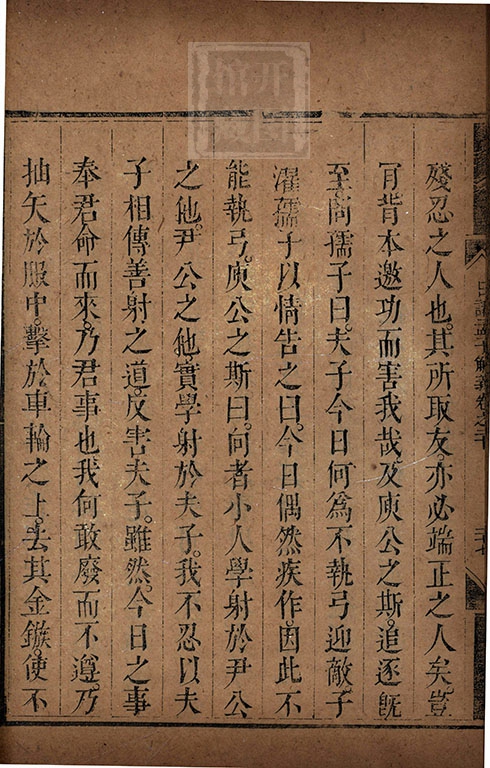 殘忍之人也。其所取友。亦必端正之人矣。豈
肎背本邀功而害我哉及庾公之斯。追逐旣
至。問孺子曰。夫子今日何爲不執弓迎敵。子
濯孺子以情吿之曰。今日偶然疾作。因此不
能執弓。庾公之斯曰。向者小人學射於尹公
之他。尹公之他。實學射於夫子。我不忍以夫
子相傳善射之道。反害夫子。雖然。今日之事
奉君命而來。乃君事也我何敢廢而不遵。乃
抽矢於服中。擊於車輪之上。去其金鏃。使不
日講孟子解義卷之二十